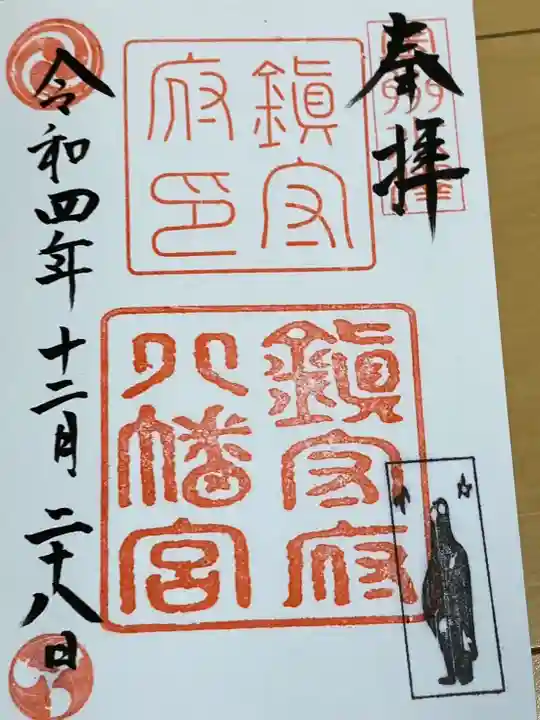 奉拝
鎮守府印
鎮守府八幡宮
令和四年十二月二十八日